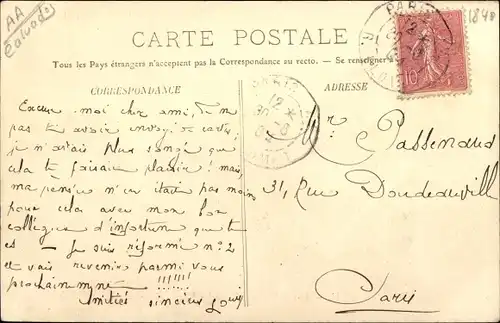 AA
Calvados
1848
CARTE POSTALE
Tous les Pays étrangers n'acceptent pas la Correspondance au recto. Se renseigner à
CORRESPONDANCE
ADRESSE
PARIS
12
PARIS
12
10
Excuse moi cher ami, de ne
pas t'avoir envoyé de carte,
je n'avais plus songé que
cela te faisait plaisir! mais
ma pensée n'en était pas moins
pour cela avec mon bon
collègue d'infortune que tu
es — Je suis réformé n° 2
et vais revenir parmi vous
prochainemne !!!!!!!
Amitiés sincères Louis
Passenaud
31, Rue Doudeauvill
Paris